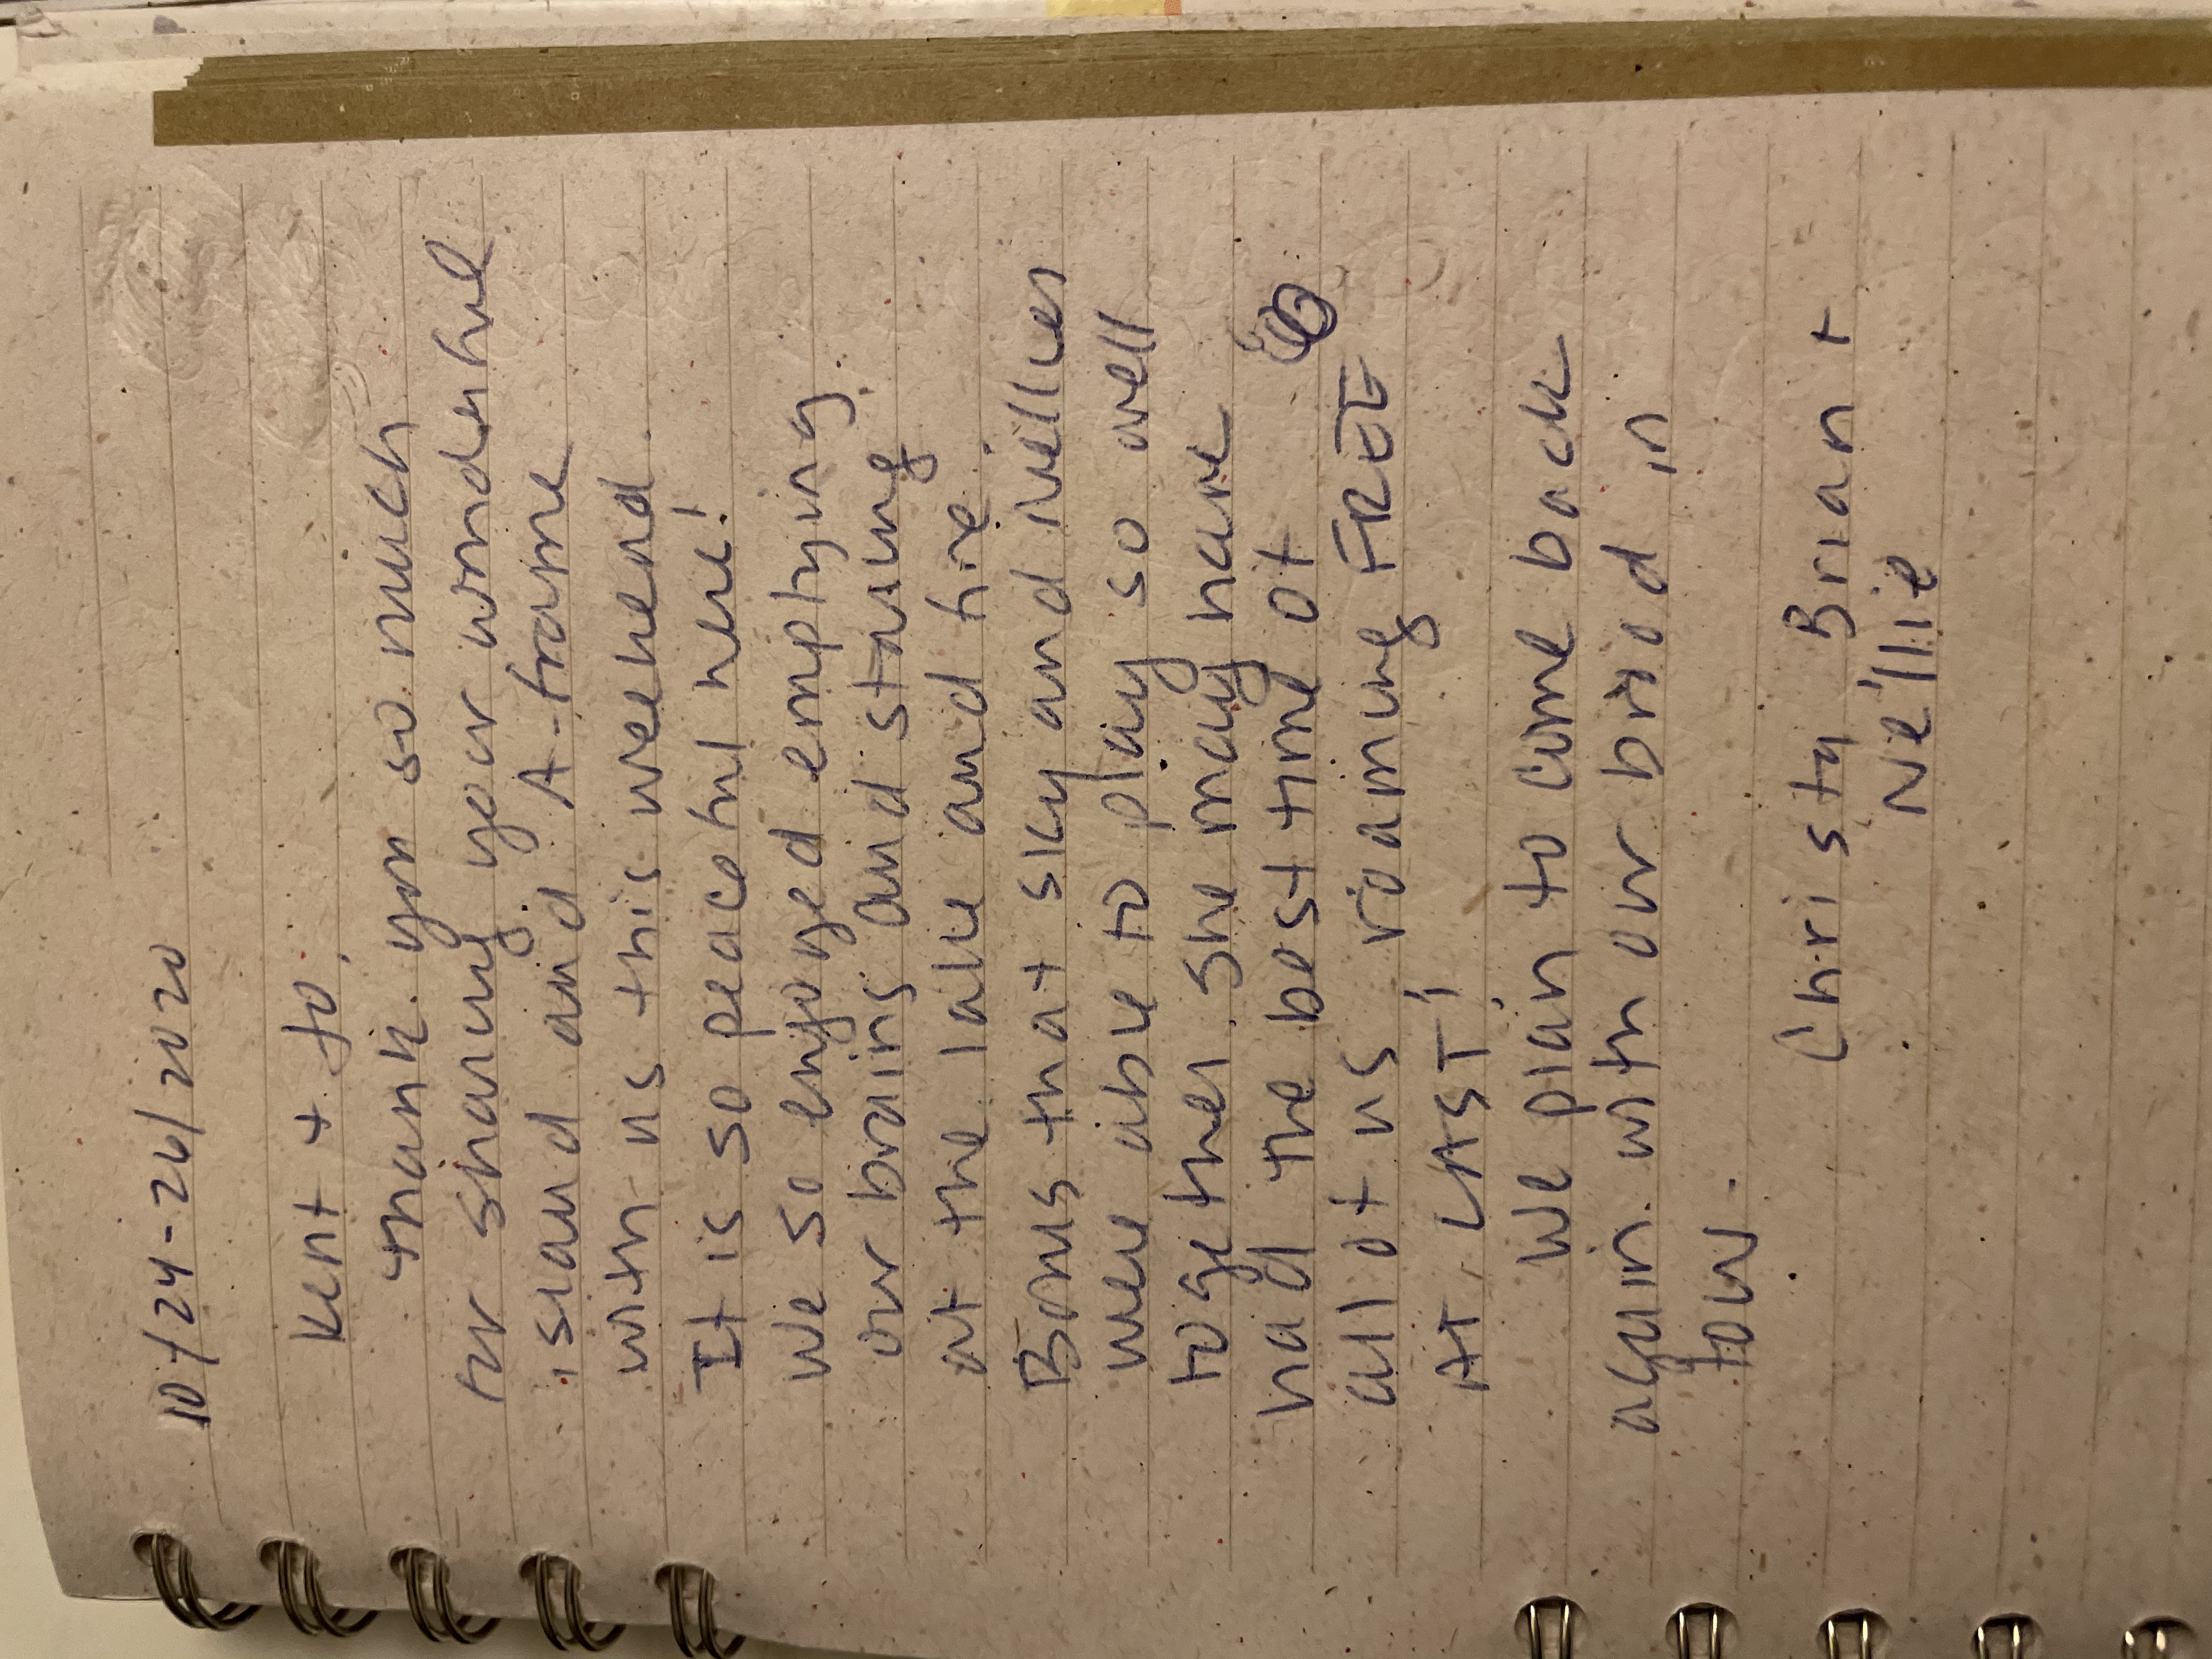 10/24-26/2020
Kent + Jo,
thank you so much
for sharing your wonderful
island and A-frame
with us this weekend.
It is so peaceful here!
We so enjoyed emptying
our brains and staring
at the lake and fire.
Bonus that Sky and Nellies
were able to play so well
together. She may have
had the best time of
all of us, roaming FREE
AT LAST!
We plan to come back
again with our brood in
tow.
Christa, Brian +
Nellie